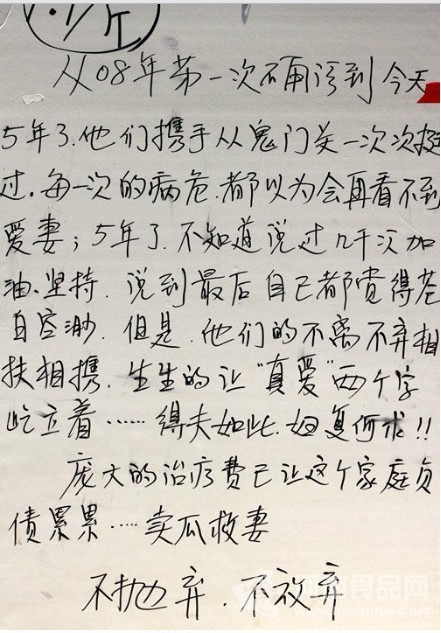 从08年第一次确诊到今天
5年了.他们携手从鬼门关一次次挺
过.每一次的病危.都以为会再看不到
爱妻;5年了.不知道说过几千次加
油.坚持.说到最后自己都觉得苍
白容渺.但是.他们的不离不弃相
扶相携.生生的让“真爱”两个字
屹立着……得夫如此.妇复何求!!
庞大的治疗费已让这个家庭负
债累累……卖瓜救妻
不抛弃.不放弃
食品网